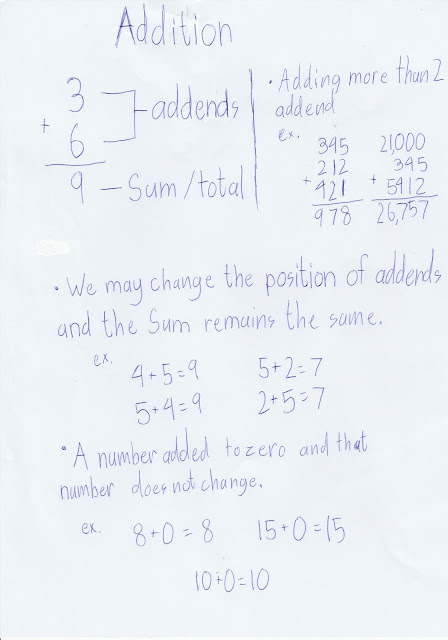 Addition
3
+
6
addends
9 – Sum/total
• Adding more than 2
addend
ex.
345
212
+ 421
978
21,000
345
+ 5412
26,757
• We may change the position of addends
and the Sum remains the same.
ex.
4+5=9 5+2=7
5+4=9 2+5=7
• A number added to zero and that
number does not change.
ex. 8+0=8 15+0=15
10+0=10